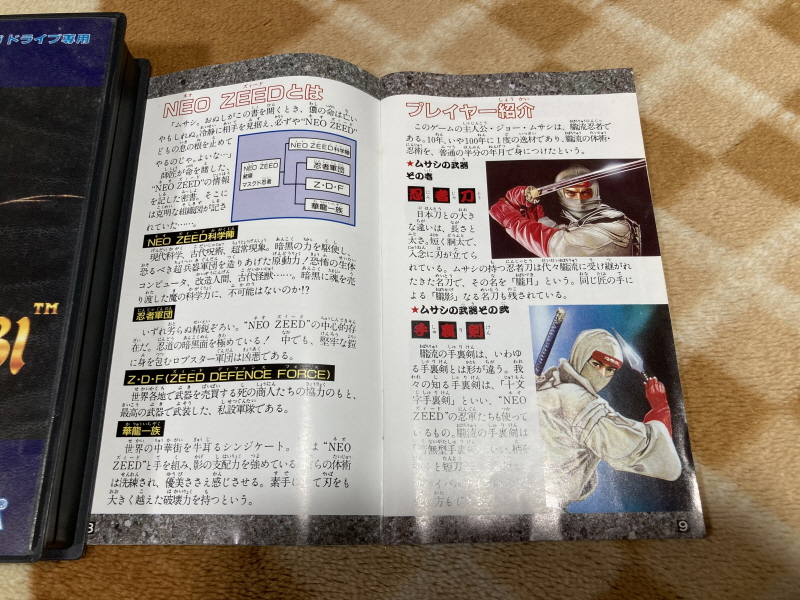 ドライブ専用
BI™
NEO ZEEDとは
「ムサシ。おぬしがこの書を開くとき、儂の命は亡い
やもしれぬ。冷静に相手を見据え、必ずや“NEO ZEED”
どもの息の根を止めて
やるのじゃ。よいな…」
師匠が命を賭した、
“NEO ZEED”の情報
を記した密書。そこに
は克明な組織図が記さ
れていた……。
NEO ZEED
総帥
マスクト忍者
NEO ZEED科学陣
忍者軍団
Z・D・F
華龍一族
NEO ZEED科学陣
現代科学、古代呪術、超常現象。暗黒の力を駆使し、
恐るべき超兵器軍団を造りあげた原動力！恐怖の生体
コンピュータ、改造人間、古代怪獣……。暗黒に魂を売
り渡した魔の科学力に、不可能はないのか!?
忍者軍団
いずれ劣らぬ精鋭ぞろい。“NEO ZEED”の中心的存
在だ。忍道の暗黒面を極めている！　中でも、堅牢な鎧
に身を包むロブスター軍団は凶悪である。
Z・D・F(ZEED DEFENCE FORCE)
世界各地で武器を売買する死の商人たちの協力のもと、
最高の武器で武装した、私設軍隊である。
華龍一族
世界の中華街を牛耳るシンジケート。　は“NEO
ZEED”と手を組み、影の支配力を強めている　らの体術
は洗練され、優美ささえ感じさせる。素手にして刃をも
大きく越えた破壊力を持つという。
8
プレイヤー紹介
このゲームの主人公・ジョー・ムサシは、朧流忍者で
ある。10年、いや100年に1度の逸材であり、朧流の体術・
忍術を、普通の半分の年月で身につけたという。
★ムサシの武器
その壱
忍者刀
日本刀との大き
な違いは、長さと
太さ。短く胴太で、
入念に刃が立てら
れている。ムサシの持つ忍者刀は代々朧流に受け継がれ
たきた名刀で、その名を「朧月」という。同じ匠の手に
よる「朧影」なる名刀も残されている。
★ムサシの武器その弐
手裏剣
朧流の手裏剣は、いわゆ
る手裏剣とは形が違う。我
々の知る手裏剣は、「十文
字手裏剣」といい、“NEO
ZEED”の忍軍たちも使って
いるもの。朧流の手裏剣は
無型手裏　　いい、柄を
と短刀
9